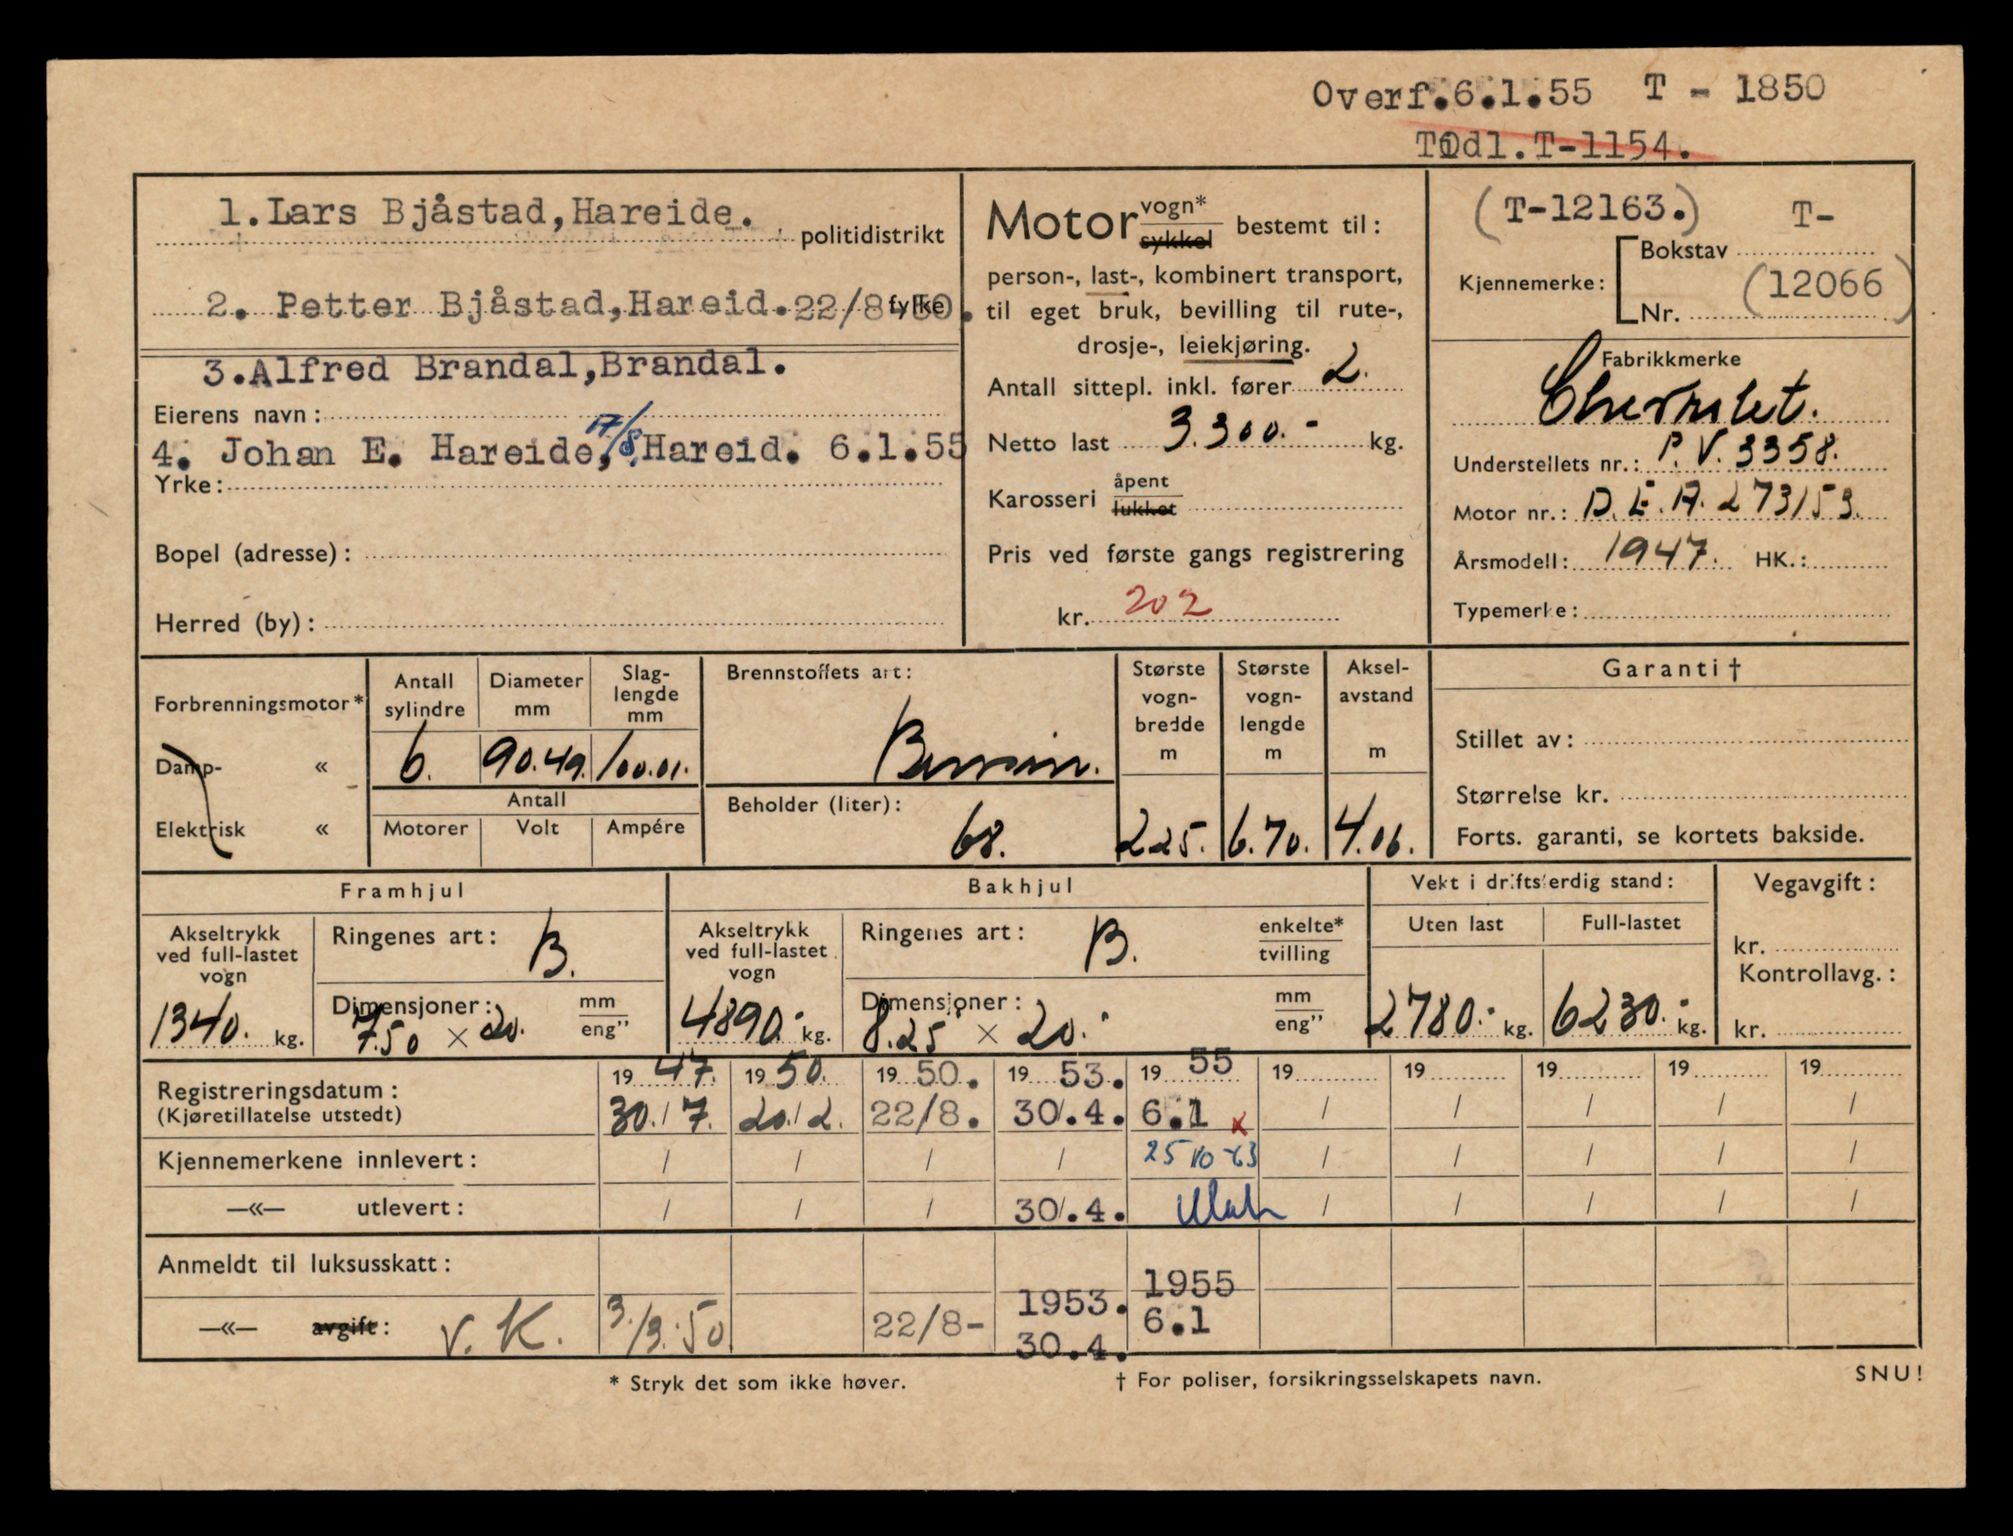 Overf.6.1.55 T - 1850
Tidl.T-1154.
1.Lars Bjåstad,Hareide.
politidistrikt
2. Petter Bjåstad,Hareid.22/8-50.
fylke
3.Alfred Brandal,Brandal.
Eierens navn:
4. Johan E. Hareide, A/S. Hareid. 6.1.55
Yrke:
Bopel (adresse):
Herred (by):
Motor vogn* sykkel bestemt til:
person-, last-, kombinert transport,
til eget bruk, bevilling til rute-,
drosje-, leiekjøring.
Antall sittepl. inkl. fører 2.
Netto last 3.300.- kg.
Karosseri åpent lukket
Pris ved første gangs registrering
kr. 202
(T-12163.) T-
Kjennemerke: Bokstav
Nr. (12066)
Fabrikkmerke
Chevrolet.
Understellets nr.: P.V. 3358.
Motor nr.: D.E.A. 273153.
Årsmodell: 1947. HK.:
Typemerke:
Forbrenningsmotor*
Damp- «
Elektrisk «
Antall sylindre
6.
Diameter mm
90.49.
Slag-lengde mm
100.01.
Antall
Motorer Volt Ampére
Brennstoffets art:
Bensin.
Beholder (liter):
68.
Største vogn-bredde m
2.25.
Største vogn-lengde m
6.70.
Aksel-avstand m
4.06.
Garanti †
Stillet av:
Størrelse kr.
Forts. garanti, se kortets bakside.
Framhjul
Akseltrykk ved full-lastet vogn
1340. kg.
Ringenes art: B.
Dimensjoner: mm eng”
7.50 × 20.
Bakhjul
Akseltrykk ved full-lastet vogn
4890.- kg.
Ringenes art: B. enkelte* tvilling
Dimensjoner: mm eng”
8.25 × 20.
Vekt i driftsferdig stand:
Uten last Full-lastet
2780.- kg. 6230.- kg.
Vegavgift:
kr.
Kontrollavg.:
kr.
Registreringsdatum: 1947. 1950. 1950. 1953. 1955 19 19 19 19 19
(Kjøretillatelse utstedt) 30./7. 20./2. 22/8. 30/.4. 6.1 x / / / / /
Kjennemerkene innlevert: / / / / 25/10-63 / / / / /
—«— utlevert: / / / 30/.4. / / / / /
Anmeldt til luksusskatt:
1953. 1955
—«— avgift: V. K. 3./3.50 22/8- 30.4. 6.1
* Stryk det som ikke høver.
† For poliser, forsikringsselskapets navn.
SNU!